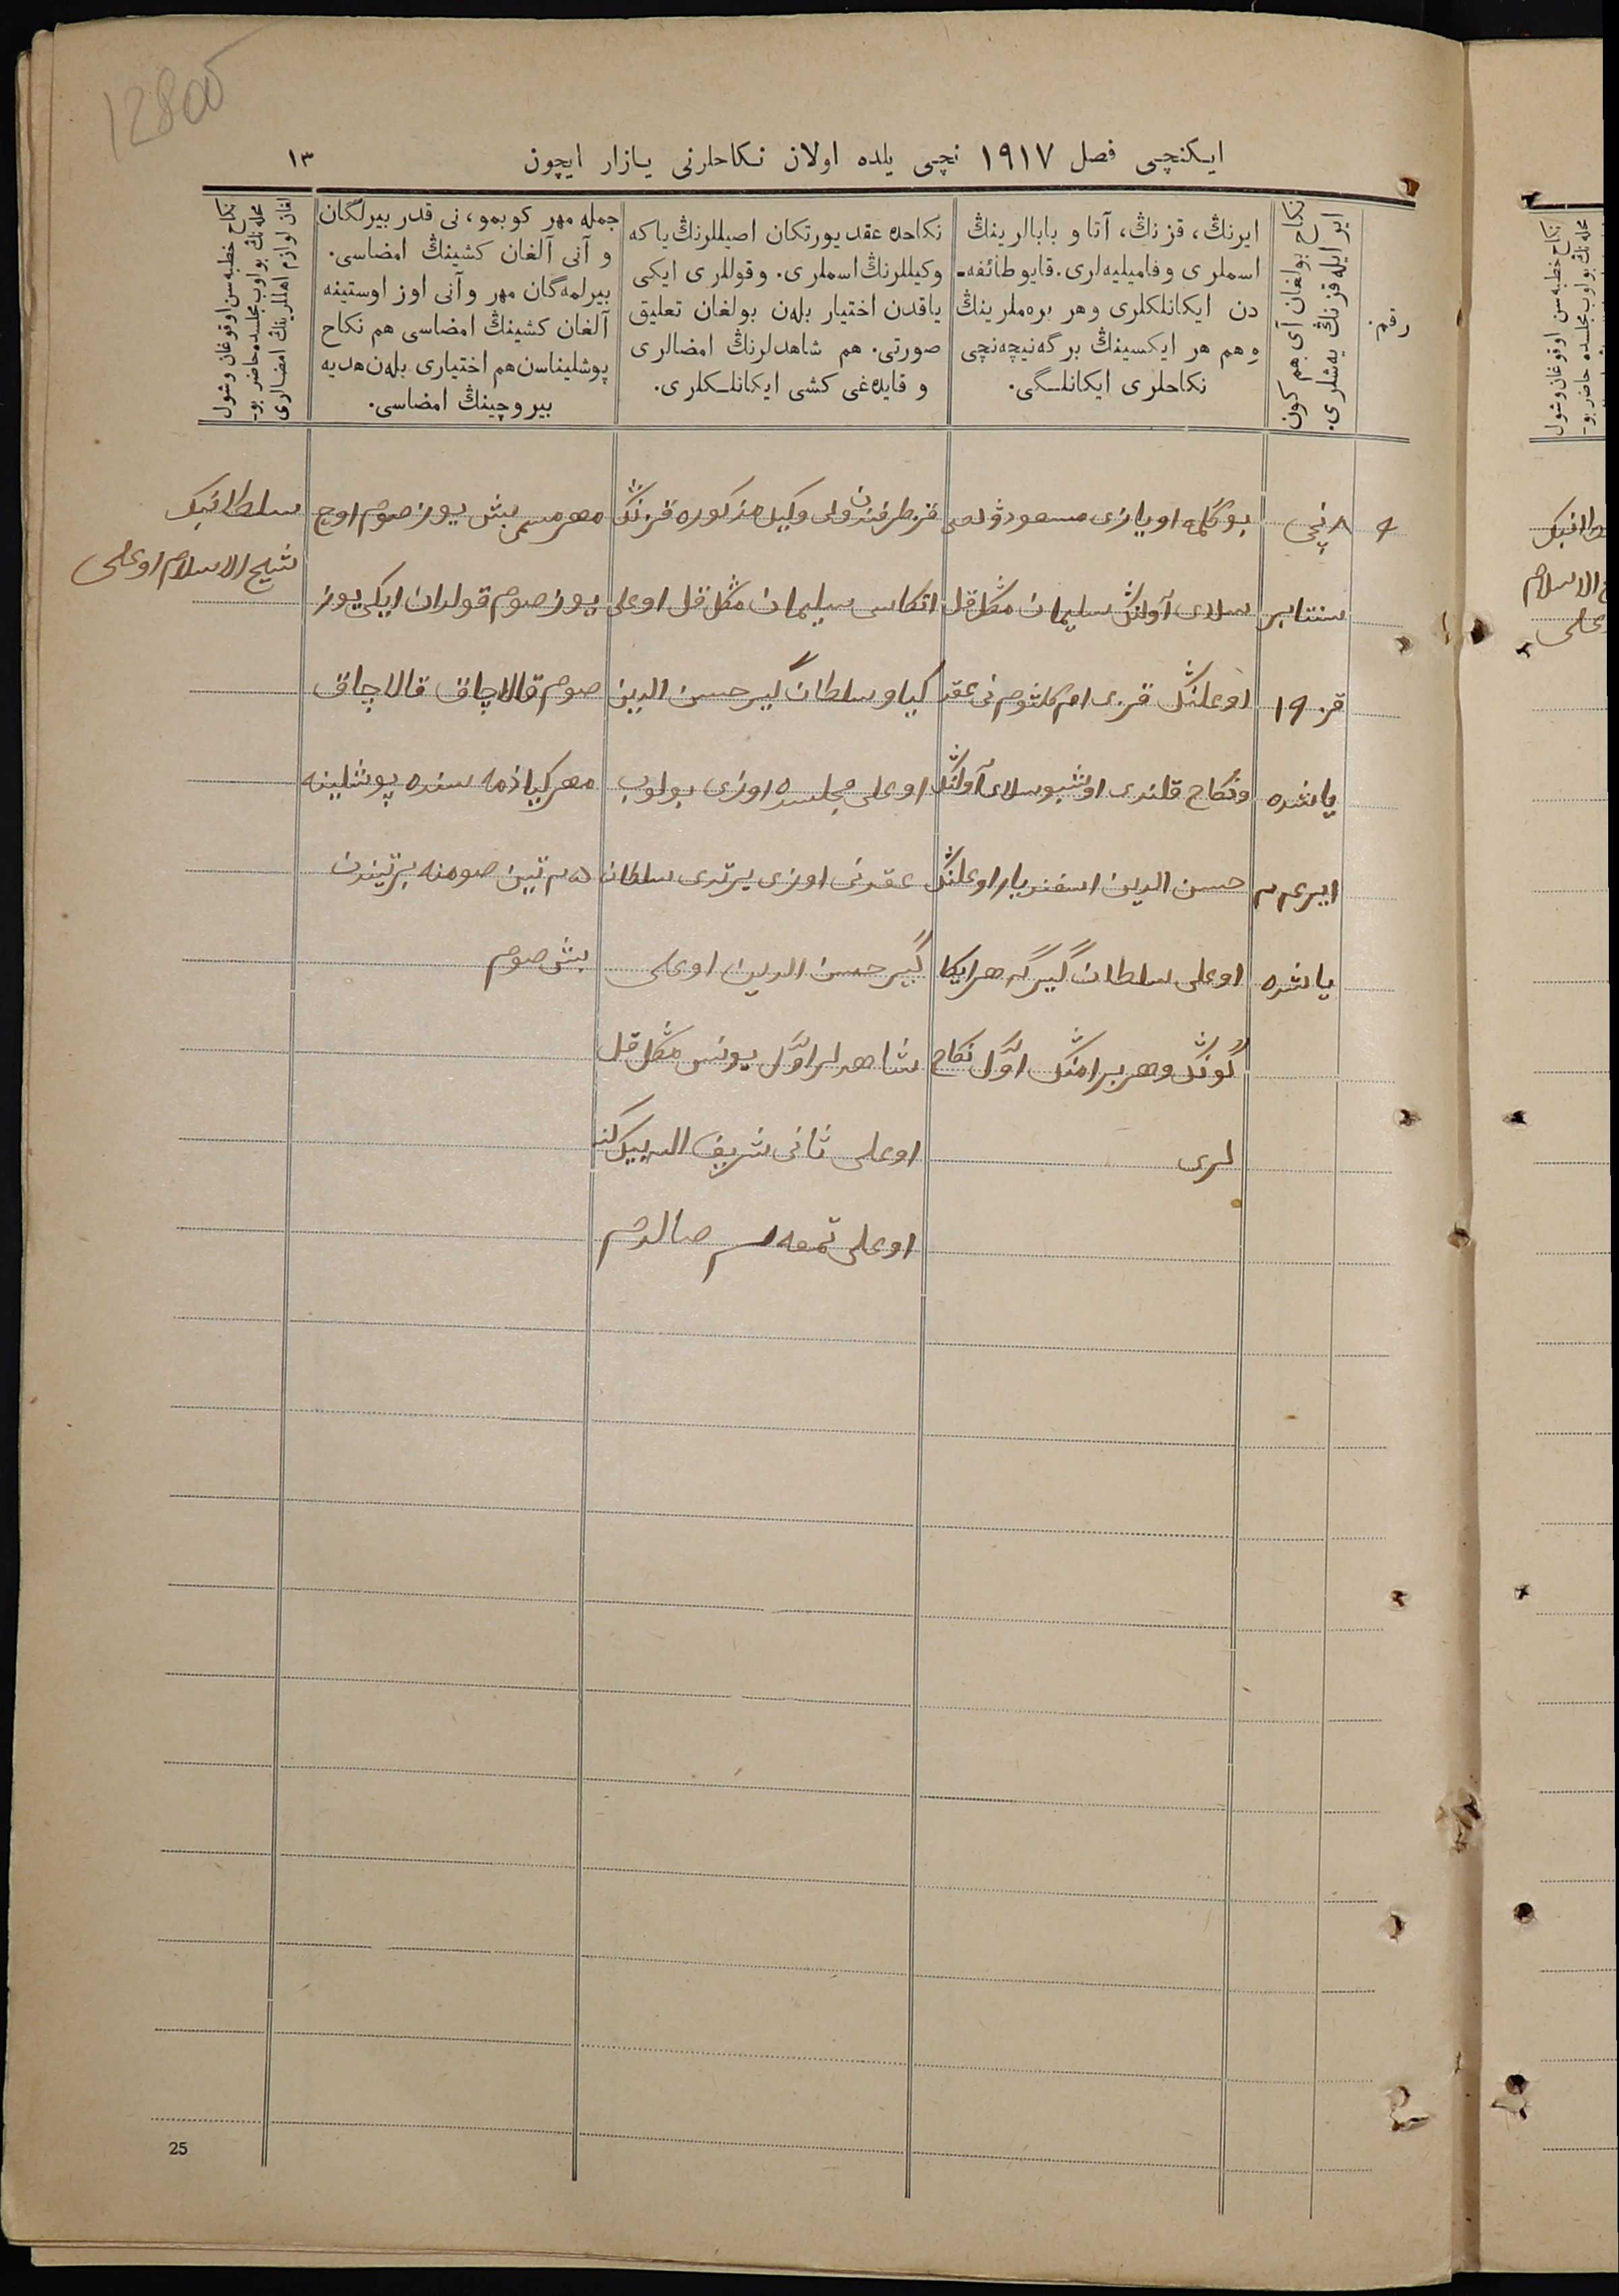 12800
ایکنچی فصل ١٩١٧ نچی یلده اولان نکاحلرنی یازار ایچون
١٣
رقم
نکاح بولغان آی هم کون
ایر ایله قزنڭ یه‌شلری.
ایرنڭ، قزنڭ، آتا و بابالرینڭ
اسملری و فامیلیه‌لری. قایو طائفه‌ـ
دن ایکانلکلری وهر بره‌ملرینڭ
وِهم هر ایکسینڭ برگه‌نیچه‌نچی
نکاحلری ایکانلـگی.
نکاحده عقد یورتکان اصیللرنڭ یاکه
وکیللرنڭ اسملری. وقوللری ایکی
یاقدن اختیار بله‌ن بولغان تعلیق
صورتی. هم شاهدلرنڭ امضالری
و قایده‌غی کشی ایکانلـکلری.
جمله مهر کوبمو، نی قدر بیرلگان
و آنی آلغان کشینڭ امضاسی.
بیرلمه‌گان مهر وآنی اوز اوستینه
آلغان کشینڭ امضاسی هم نکاح
پوشلیناسن هم اختیاری بله‌ن هدیه
بیروچینڭ امضاسی.
نکاح خطبه‌سن اوقوغان وشول
محله‌نڭ بو اوب مجلسده حاضر بو-
لغان لوازم اهللرینڭ امضالری
٩
٨ نچی
سنتابر
قز ١٩
یاشده
ایر ٢٣
یاشده
بوگلمه اویازی مسعود ولصی
سلای آولنڭ سلیمان منگل قل
اوغلنڭ قزی ام کلثوم نی عقد
ونکاح قلندی اوشبو سلای آولنڭ
حسن الدین اسفندیار اوغلنڭ
اوغلی سلطان گیرگه هر ایکا
گونڭ وهر برامنڭ اوّل نکاح
لری
قز طرفندن ولی وکیل مذکوره قزنڭ
اتکاسی سلیمان منگل قل اوغلی
کیاو سلطان گیر حسن الدین
اوغلی مجلسده اوزی بولوب
عقدنی اوزی یرتدی سلطان
گیر حسن الدین اوغلی
شاهدلر اوّل یونس منگل قل
اوغلی ثانی شریف
اوغلی تمغه صالدم
مهر مسمی بش یوز صوم اوچ
یوز صوم قولدان ایکی یوز
صوم قالاچاق قالاچاق
مهر کیاو ذمه سنده پوشلینه
تیین صومنه بر تیندن
بش صوم
سلطانبک
شیخ الاسلام اوغلی
25